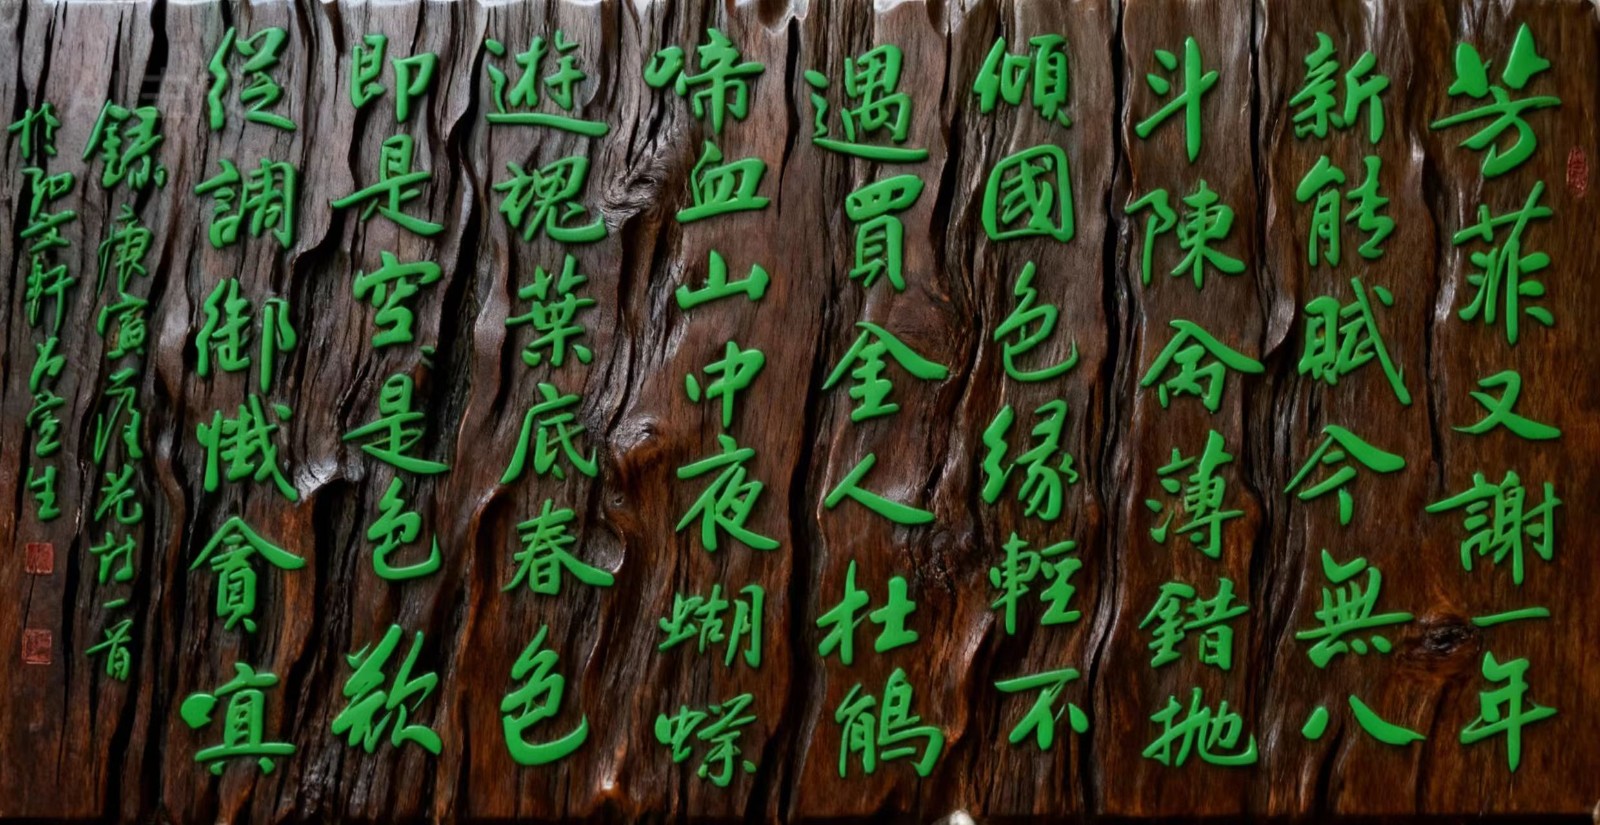 芳菲又謝一年
新能賦今無八
斗陳禽薄錯拋
傾國色緣輕不
遇買金人杜鵑
啼血山中夜蝴蝶
遊魂葉底春色
即是空々是色欲
從調御懺貪嗔
錄唐寅落花詩一首
於文軒生